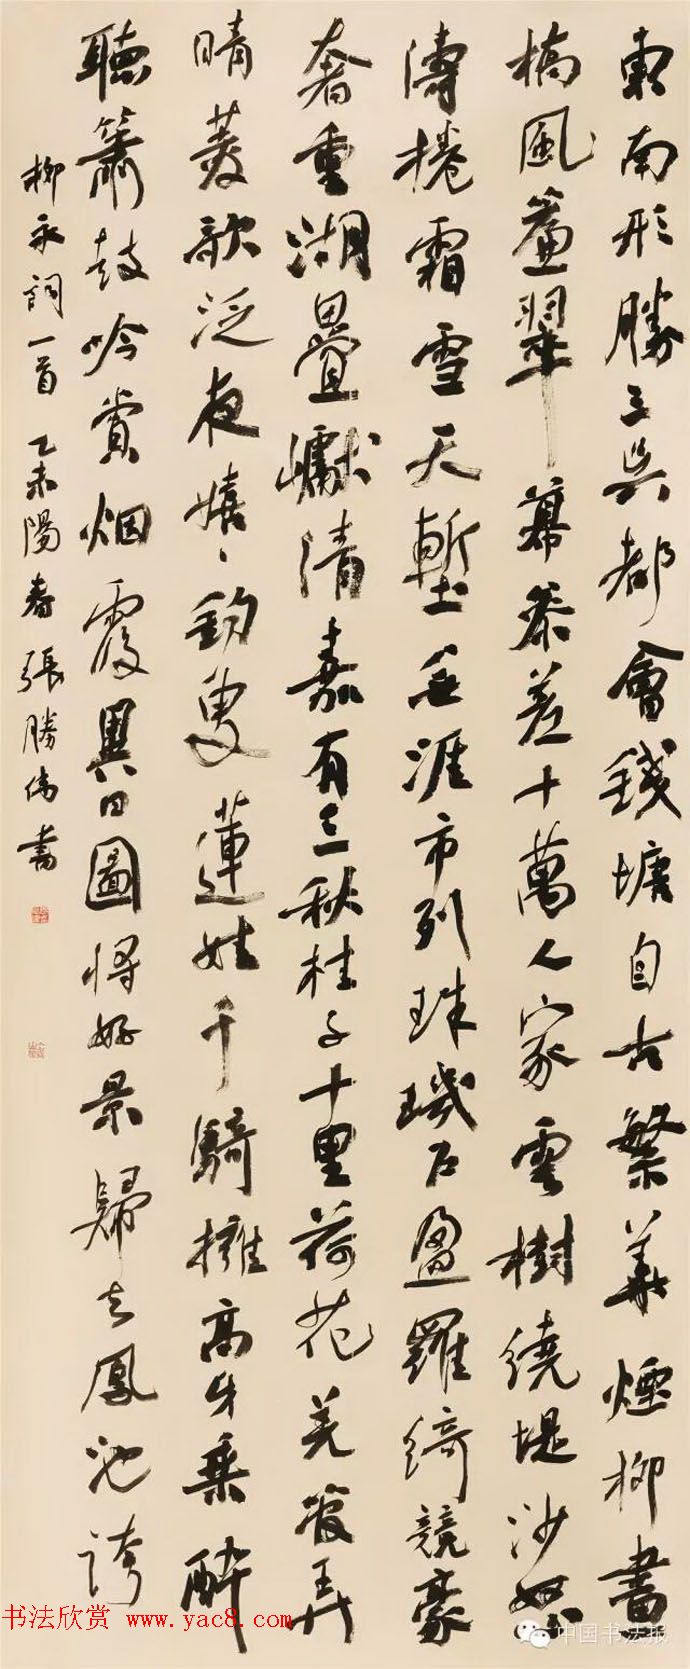 東南形勝三吳都會錢塘自古繁華煙柳畫
橋風簾翠幕參差十萬人家雲樹繞堤沙怒
濤捲霜雪天塹無涯市列珠璣戶盈羅綺競豪
奢重湖疊巘清嘉有三秋桂子十里荷花羌管弄
晴菱歌泛夜嬉、釣叟蓮娃千騎擁高牙乘醉
聽簫鼓吟賞烟霞異日圖將好景歸去鳳池誇
柳永詞一首 乙未陽春張勝偉書
书法欣赏 www.yac8.com
中国书法报